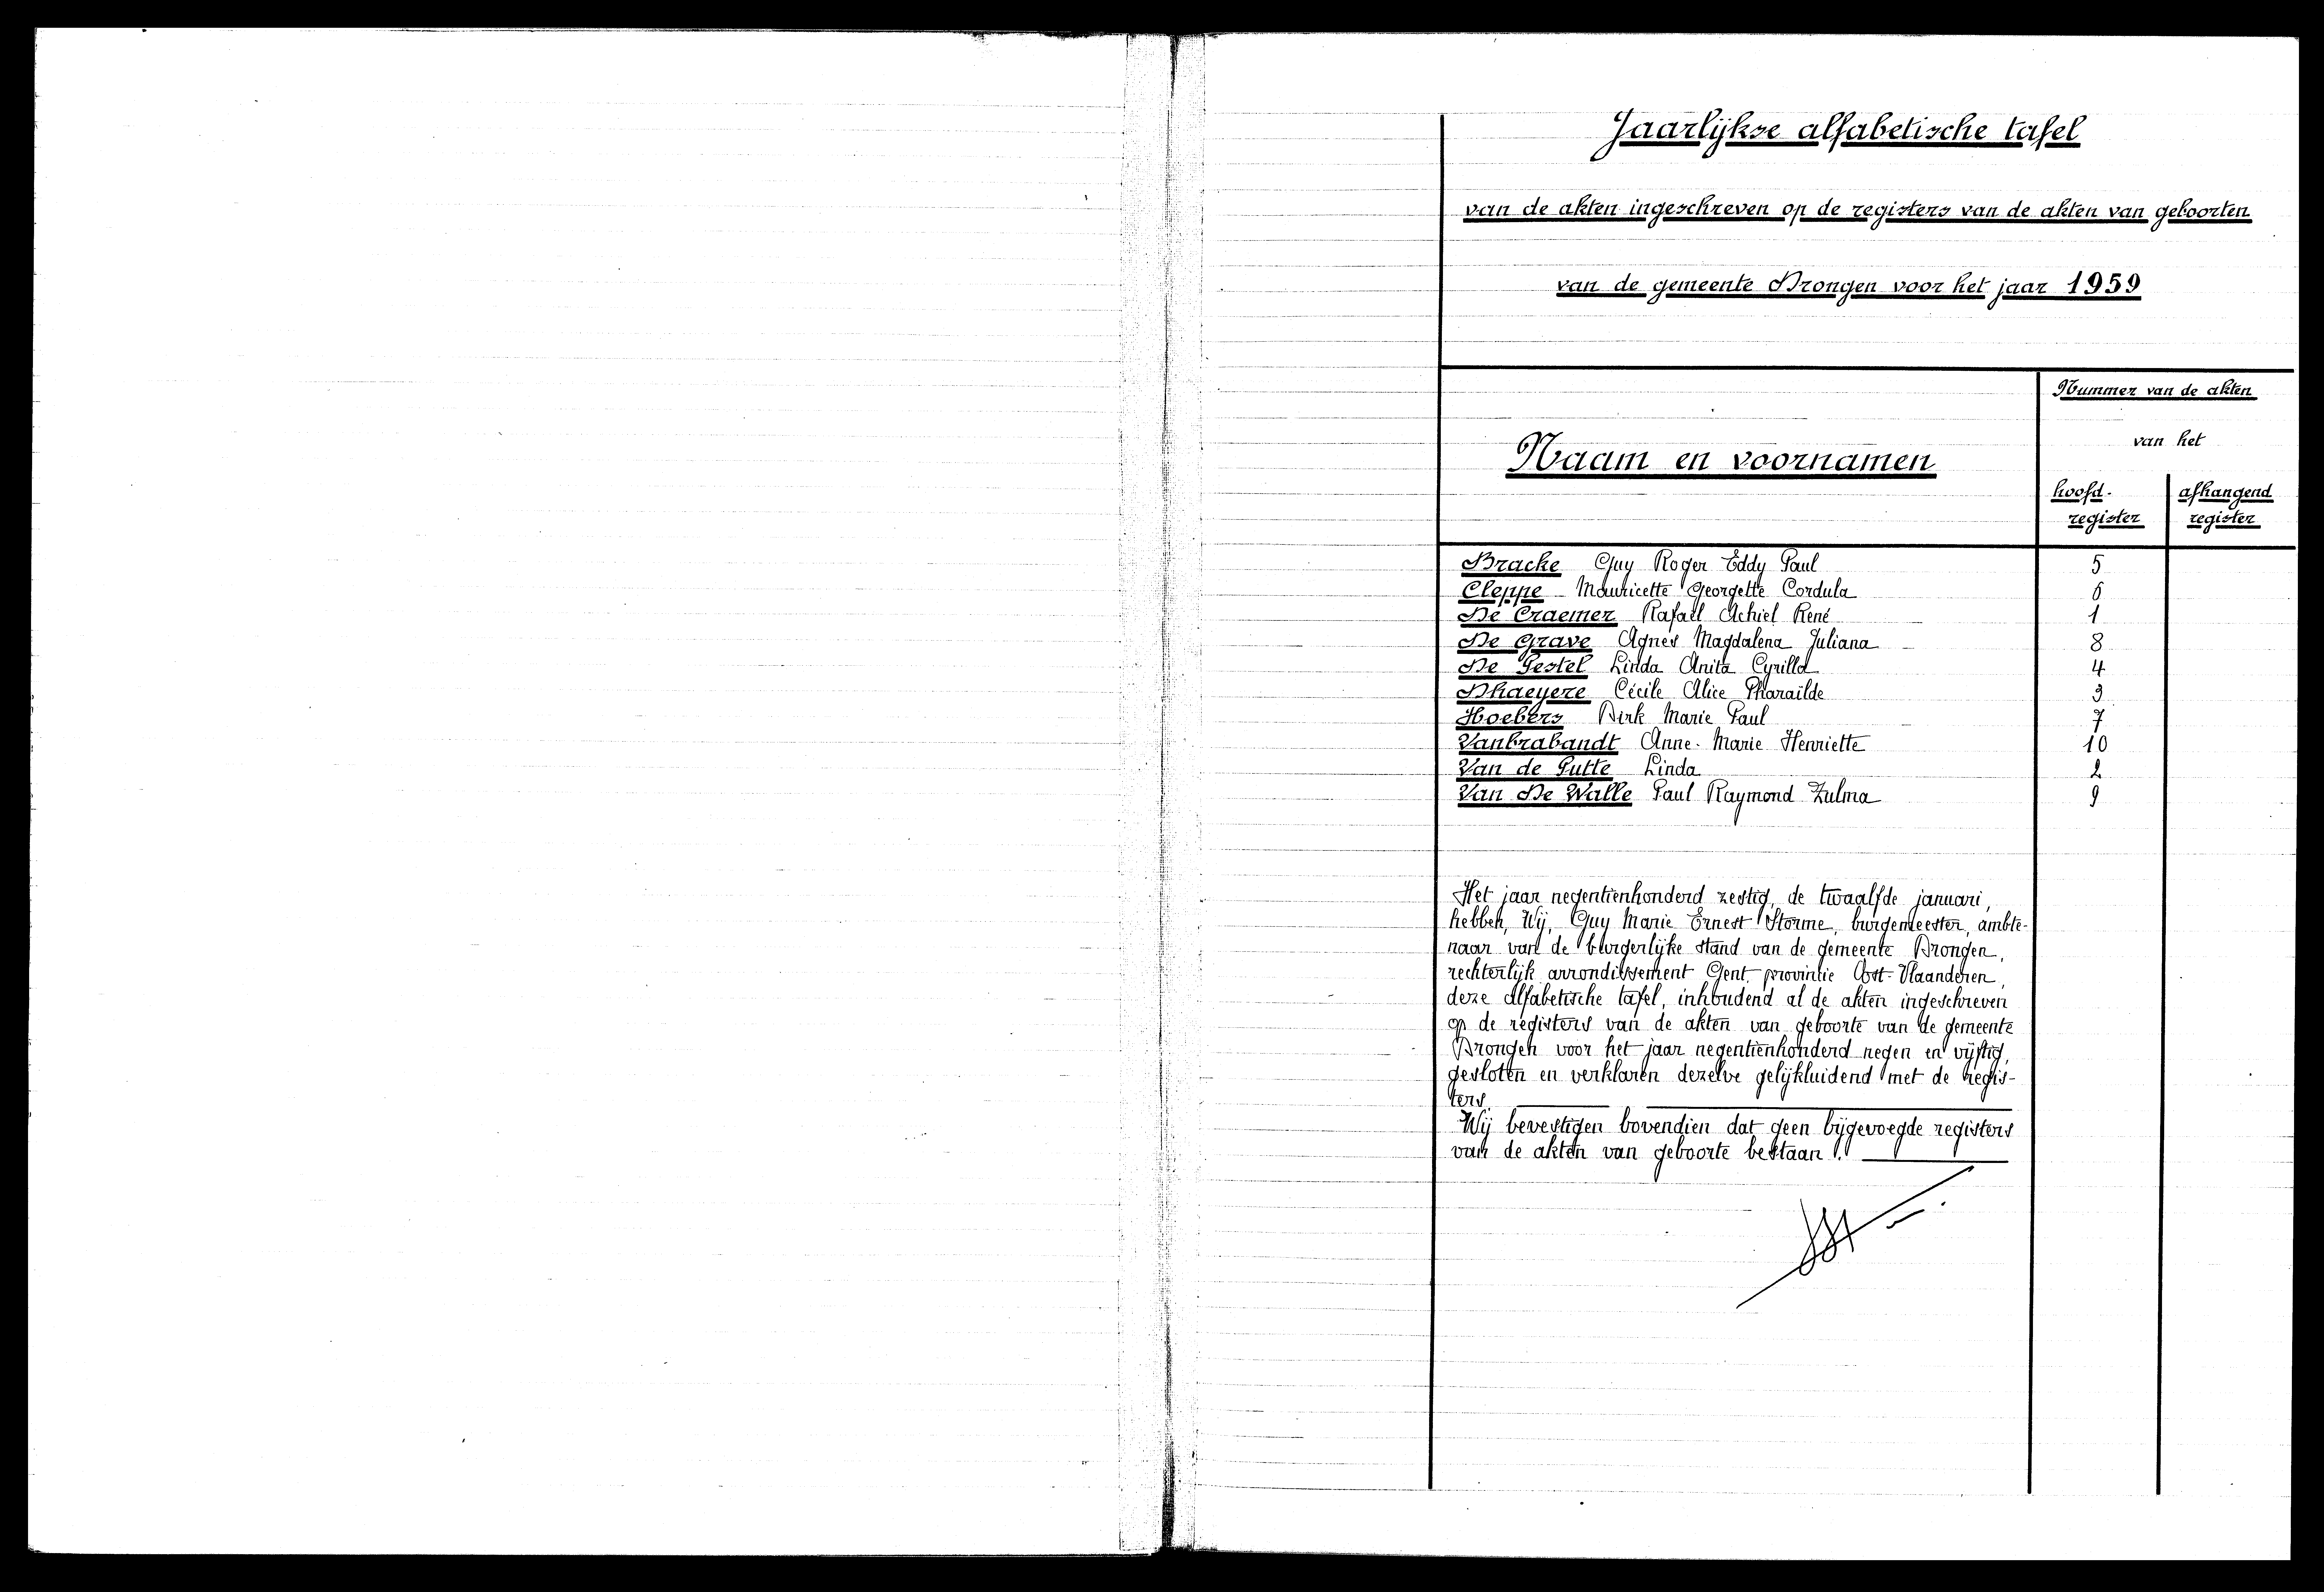 Jaarlijkse alfabetische tafel
van de akten ingeschreven op de registers van de akten van geboorten
van de gemeente Drongen voor het jaar 1959
Nummer van de akten
van het
Naam en voornamen
hoofd- afhangend
register register
Bracke Guy Roger Eddy Paul 5
Cleppe Mauricette Georgette Cordula 6
De Craemer Rafaël Achiel René 1
De Grave Agnes Magdalena Juliana 8
De Pestel Linda Anita Cyrilla 4
Dhaeyere Cécile Alice Pharaïlde 3
Hoebers Dirk Marie Paul 7
Vanbrabandt Anne-Marie Henriette 10
Van de Putte Linda 2
Van De Walle Paul Raymond Zulma 9
Het jaar negentienhonderd zestig, de twaalfde januari,
hebben, Wij, Guy Marie Ernest Storme, burgemeester, ambte-
naar van de burgerlijke stand van de gemeente Drongen,
rechterlijk arrondissement Gent, provintie Oost-Vlaanderen,
deze alfabetische tafel, inhoudend al de akten ingeschreven
op de registers van de akten van geboorte van de gemeente
Drongen voor het jaar negentienhonderd negen en vijftig,
gesloten en verklaren dezelve gelijkluidend met de regis-
ters.
Wij bevestigen bovendien dat geen bijgevoegde registers
van de akten van geboorte bestaan.